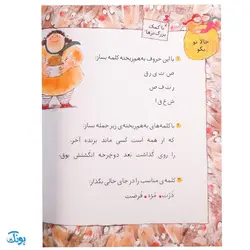 با کمک
بزرگ‌ترها
حالا تو
بگو
با این حروف به‌هم‌ریخته کلمه بساز:
ص ت ی ر ق
ر ت ف ص
ش غ ق ا
با کلمه‌های به‌هم‌ریخته‌ی زیر جمله بساز:
که از همه است کسی ماند برنده آخر
را روی گذاشت بعد دوچرخه انگشتش بوق
کلمه‌ی مناسب را در جای خالی بگذار:
مزه
فرصت
پونک